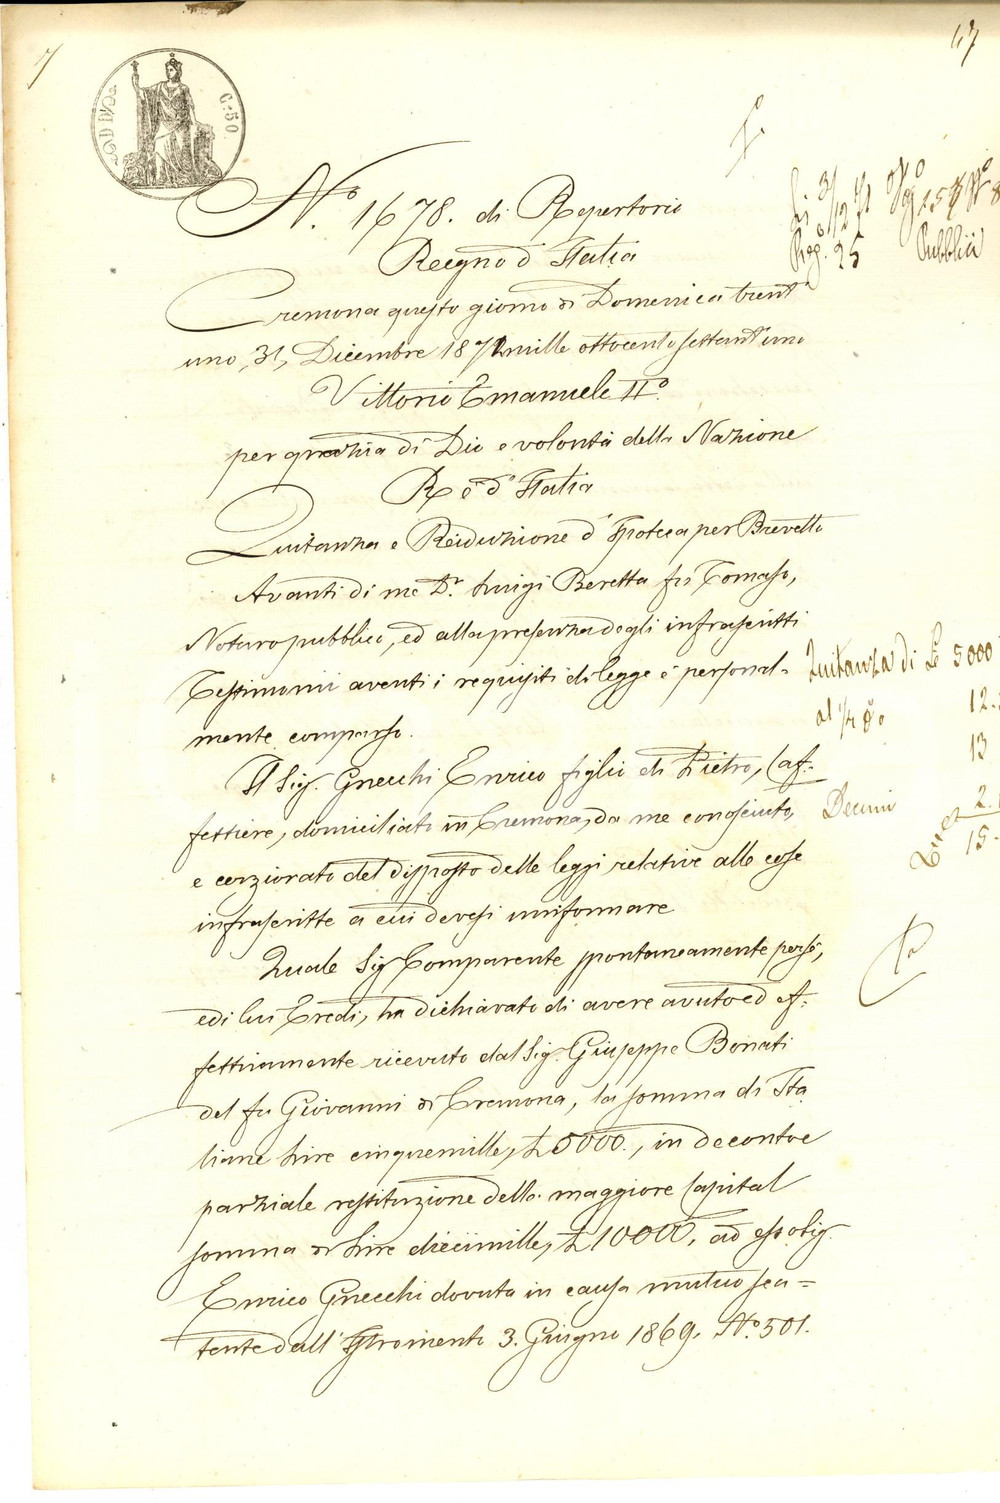 47
C. 50
N.° 1678. di Repertorio
Regno d' Italia
Cremona questo giorno di Domenica trent'
uno, 31, Dicembre 1871 mille ottocento settant'uno
Vittorio Emanuele II°.
per grazia di Dio e volontà della Nazione
Re d' Italia
Quitanza e Reiduzione d' Ipoteca per Brevetto
Avanti di me Dr. Luigi Beretta fu Tomaso,
Notaro pubblico, ed alla presenza degli infrascritti
Testimoni aventi i requisiti di legge è personal-
mente comparso.
Il Sig. Gnecchi Enrico figlio di Pietro, Caf-
fettiere, domiciliato in Cremona, da me conosciuto,
e cerziorato del disposto delle leggi relative alle cose
infrascritte a cui devesi uniformare
Quale Sig Comparente spontaneamente per sé,
e di lui Eredi, ha dichiarato di avere avuto ed ef-
fettivamente ricevuto dal Sig. Giuseppe Bonati
del fu Giovanni di Cremona, la somma di Ita
liane Lire cinquemille, £ 5000., in deconto e
parziale restituzione della maggiore Capital
somma di Lire diecimille, £ 10000, ad esso Sig.
Enrico Gnecchi dovuta in causa mutuo sca-
tente dall' Istromento 3. Giugno 1869. N.° 501.
Li 3/1 71
Reg. 25
Pubblici
Quitanza di £ 5000
al 1/4 %
12.
13
Decimi
2.
15.